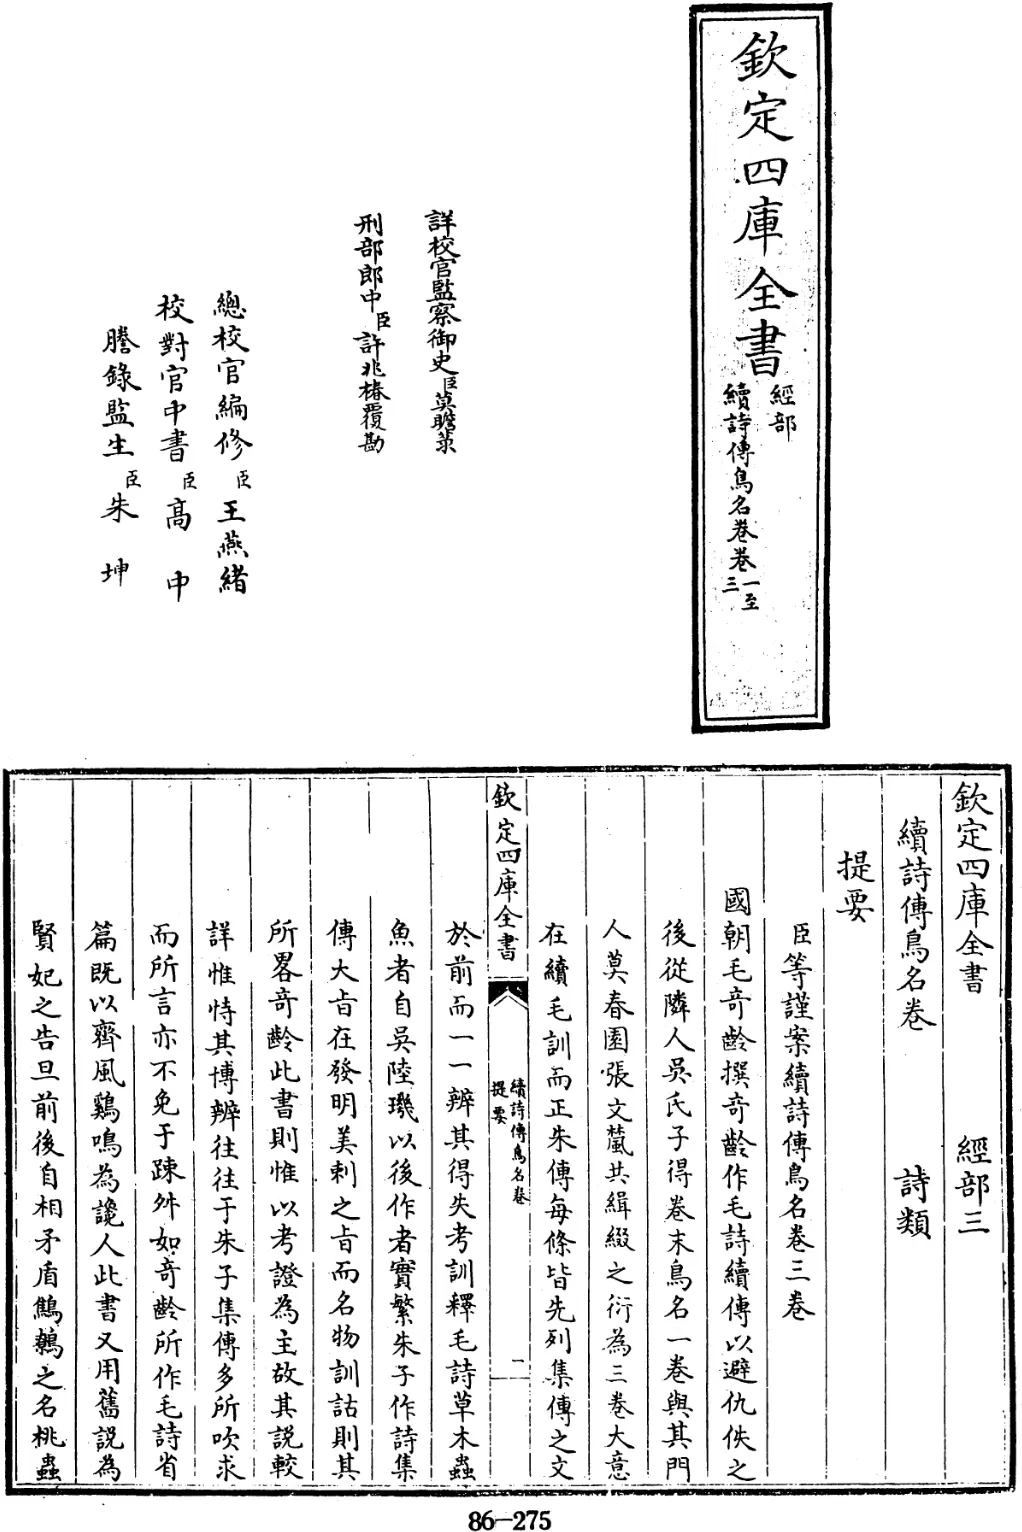 欽定四庫全書
經部
續詩傳鳥名卷卷一至三
詳校官監察御史臣莫瞻菉
刑部郎中臣許兆椿覆勘
總校官編修臣王燕緒
校對官中書臣高中
謄錄監生臣朱坤
欽定四庫全書 經部三
續詩傳鳥名卷 詩類
提要
臣等謹案續詩傳鳥名卷三卷
國朝毛奇齡撰奇齡作毛詩續傳以避仇佚之
後從隣人吳氏子得卷末鳥名一卷與其門
人莫春園張文蘆共緝綴之衍為三卷大意
在續毛訓而正朱傳每條皆先列集傳之文
欽定四庫全書
續詩傳鳥名卷
提要
二
於前而一一辨其得失考訓釋毛詩草木蟲
魚者自吳陸璣以後作者實繁朱子作詩集
傳大旨在發明美刺之旨而名物訓詁則其
所畧奇齡此書則惟以考證為主故其説較
詳惟恃其博辨往往于朱子集傳多所吹求
而所言亦不免于踈舛如奇齡所作毛詩省
篇既以齊風鷄鳴為讒人此書又用舊説為
賢妃之告旦前後自相矛盾鷦鷯之名桃蟲
86-275